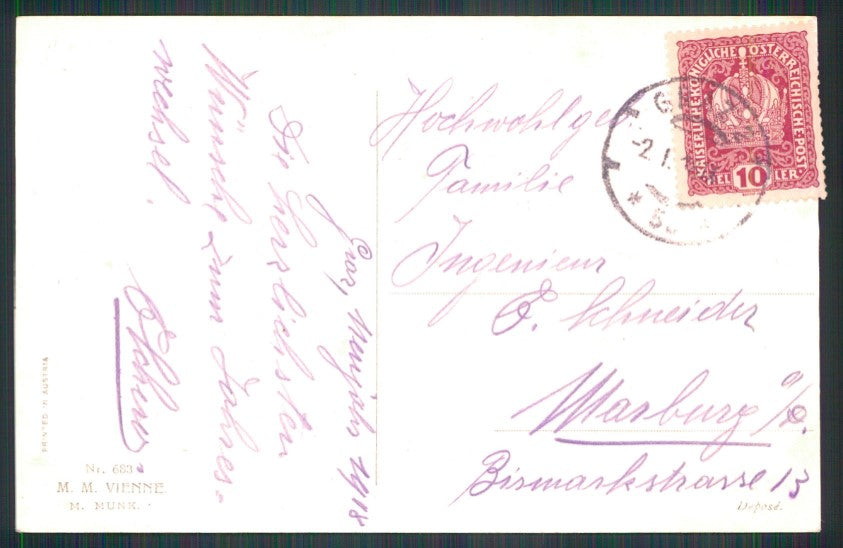 Graz, Neujahr 1918
Die herzlichsten
Wünsche zum Jahres-
wechsel.
Hochwohlgeb.
Familie
Ingenieur
E. Schneider
Marburg a/D.
Bismarkstrasse 13
KAISERLICHE KÖNIGLICHE ÖSTERREICHISCHE POST
HELLER
10
GRAZ
PRINTED IN AUSTRIA
Nr. 683
M. M. VIENNE.
M. MUNK.
Déposé.